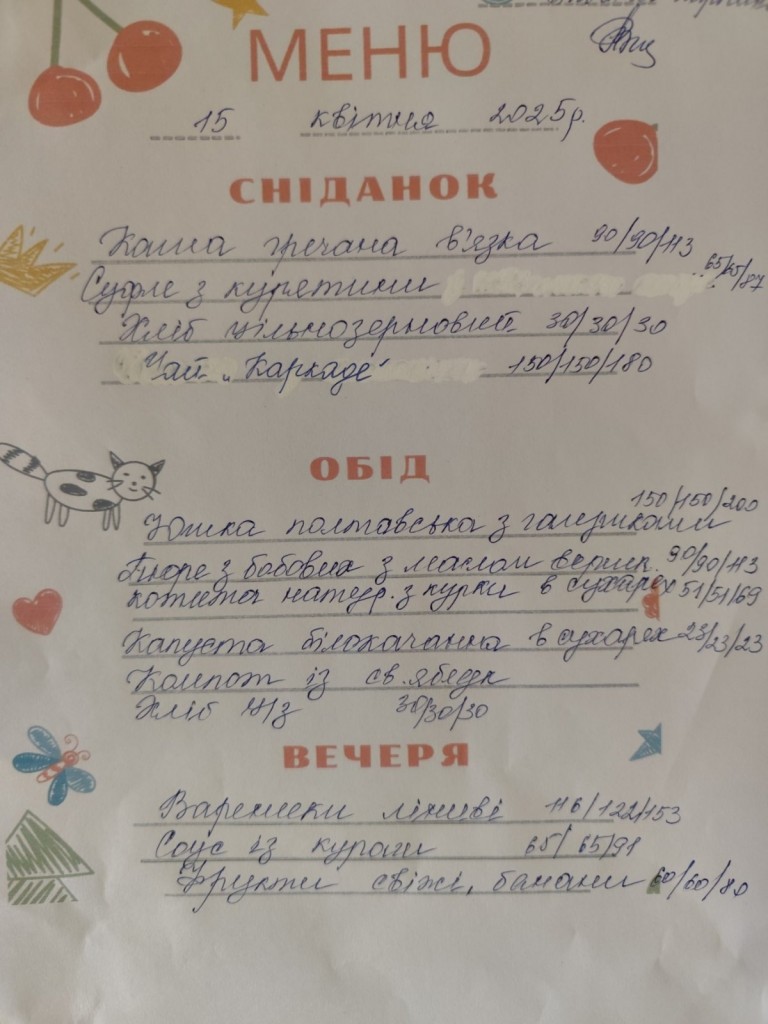 МЕНЮ
15 квітня 2025р.
СНІДАНОК
Каша гречана в'язка 90/90/113
Суфле з курятини 65/65/87
Хліб цільнозерновий 30/30/30
Чай „Каркаде" 150/150/180
ОБІД
Юшка полтавська з галушками 150/150/200
Пюре з бобових з маслом вершк. 90/90/113
котлета натур. з курки в сухарях 51/51/69
Капуста білокачанна в сухарях 23/23/23
Компот із св. яблук
Хліб ц/з 30/30/30
ВЕЧЕРЯ
Вареники ліниві 116/122/153
Соус із кураги 65/65/91
Фрукти свіжі, банани 60/60/80